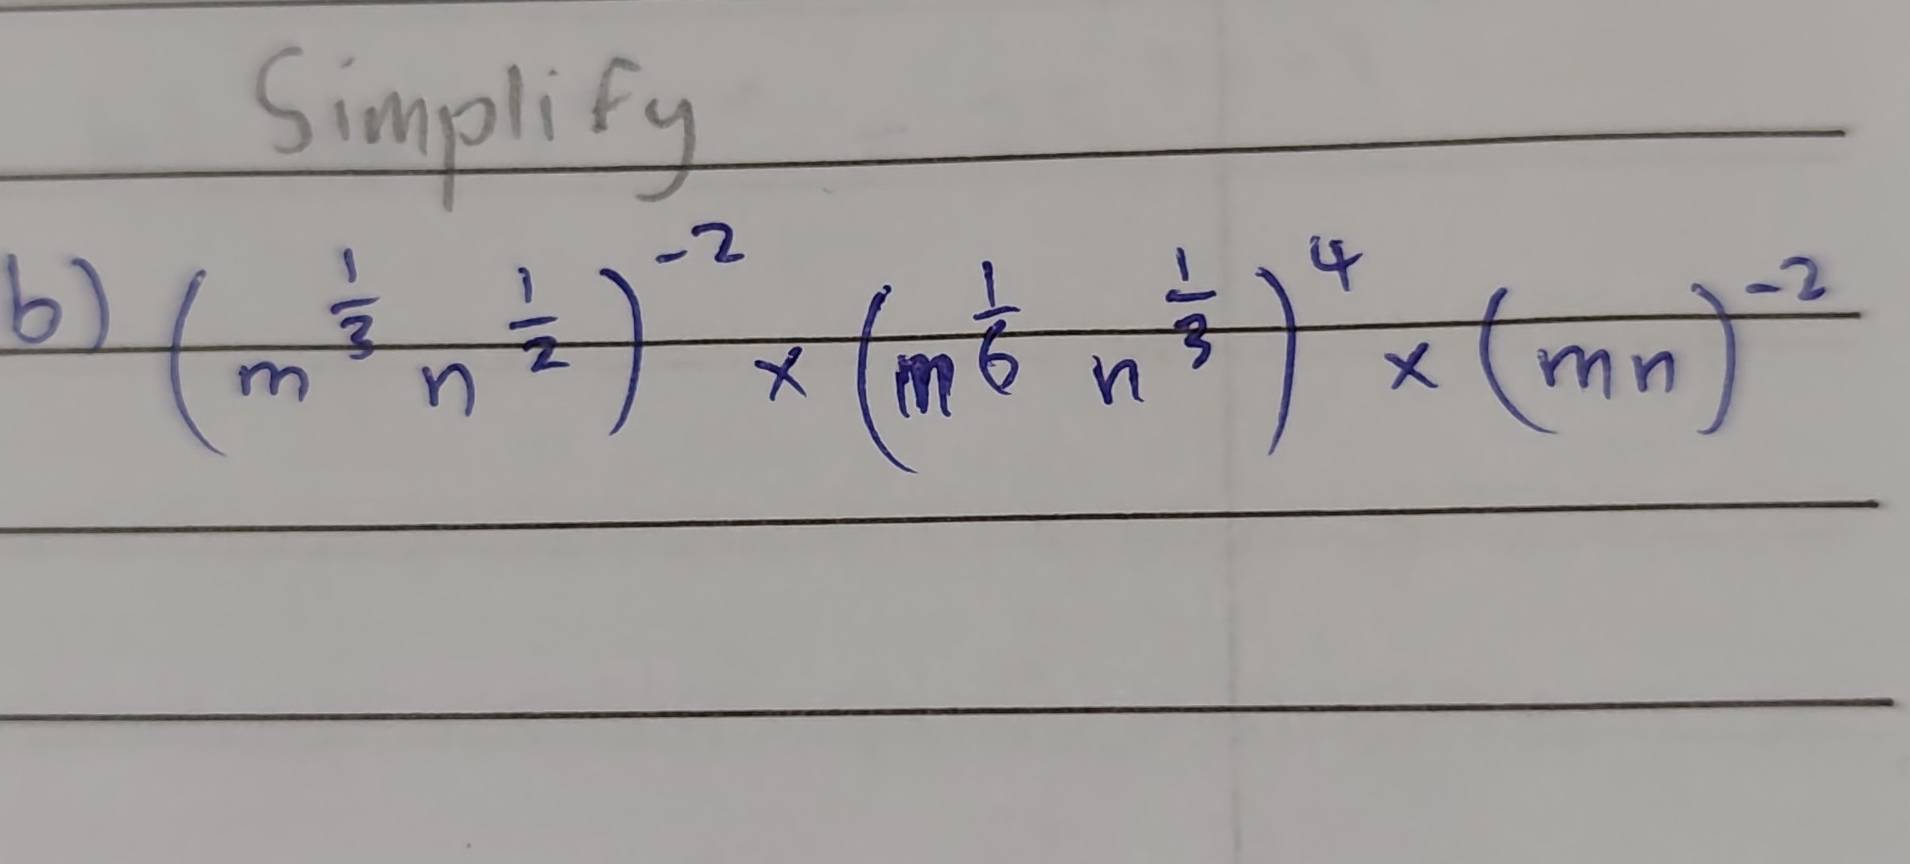 Simplify
b) (m^{1/3} n^{1/2})^{-2} × (m^{1/6} n^{1/3})^{4} × (mn)^{-2}